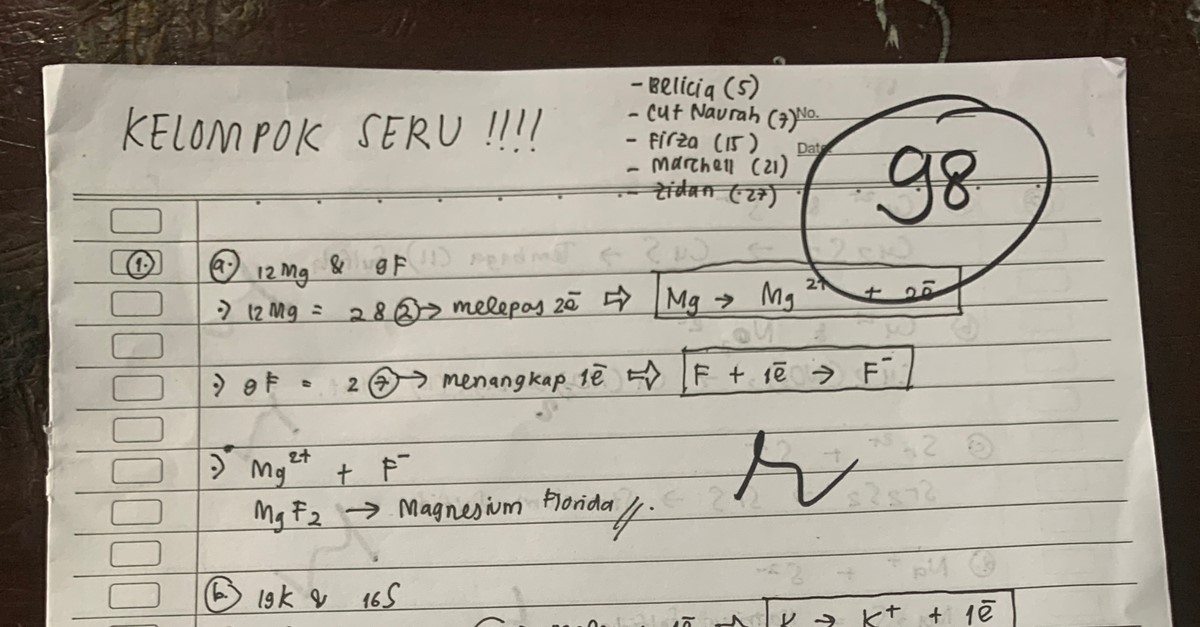 KELOMPOK SERU !!!!
- Belicia (5)
- Cut Naurah (7)
- Firza (15)
- Marchell (21)
- Zidan (27)
No.
Date
98
1. a. 12Mg & 9F
:) 12Mg = 2 8 2 → melepas 2ē ⇨ Mg → Mg²⁺ + 2ē
:) 9F = 2 7 → menangkap 1ē ⇨ F + 1ē → F⁻
:) Mg²⁺ + F⁻
MgF₂ → Magnesium Florida //.
b. 19K & 16S
K → K⁺ + 1ē